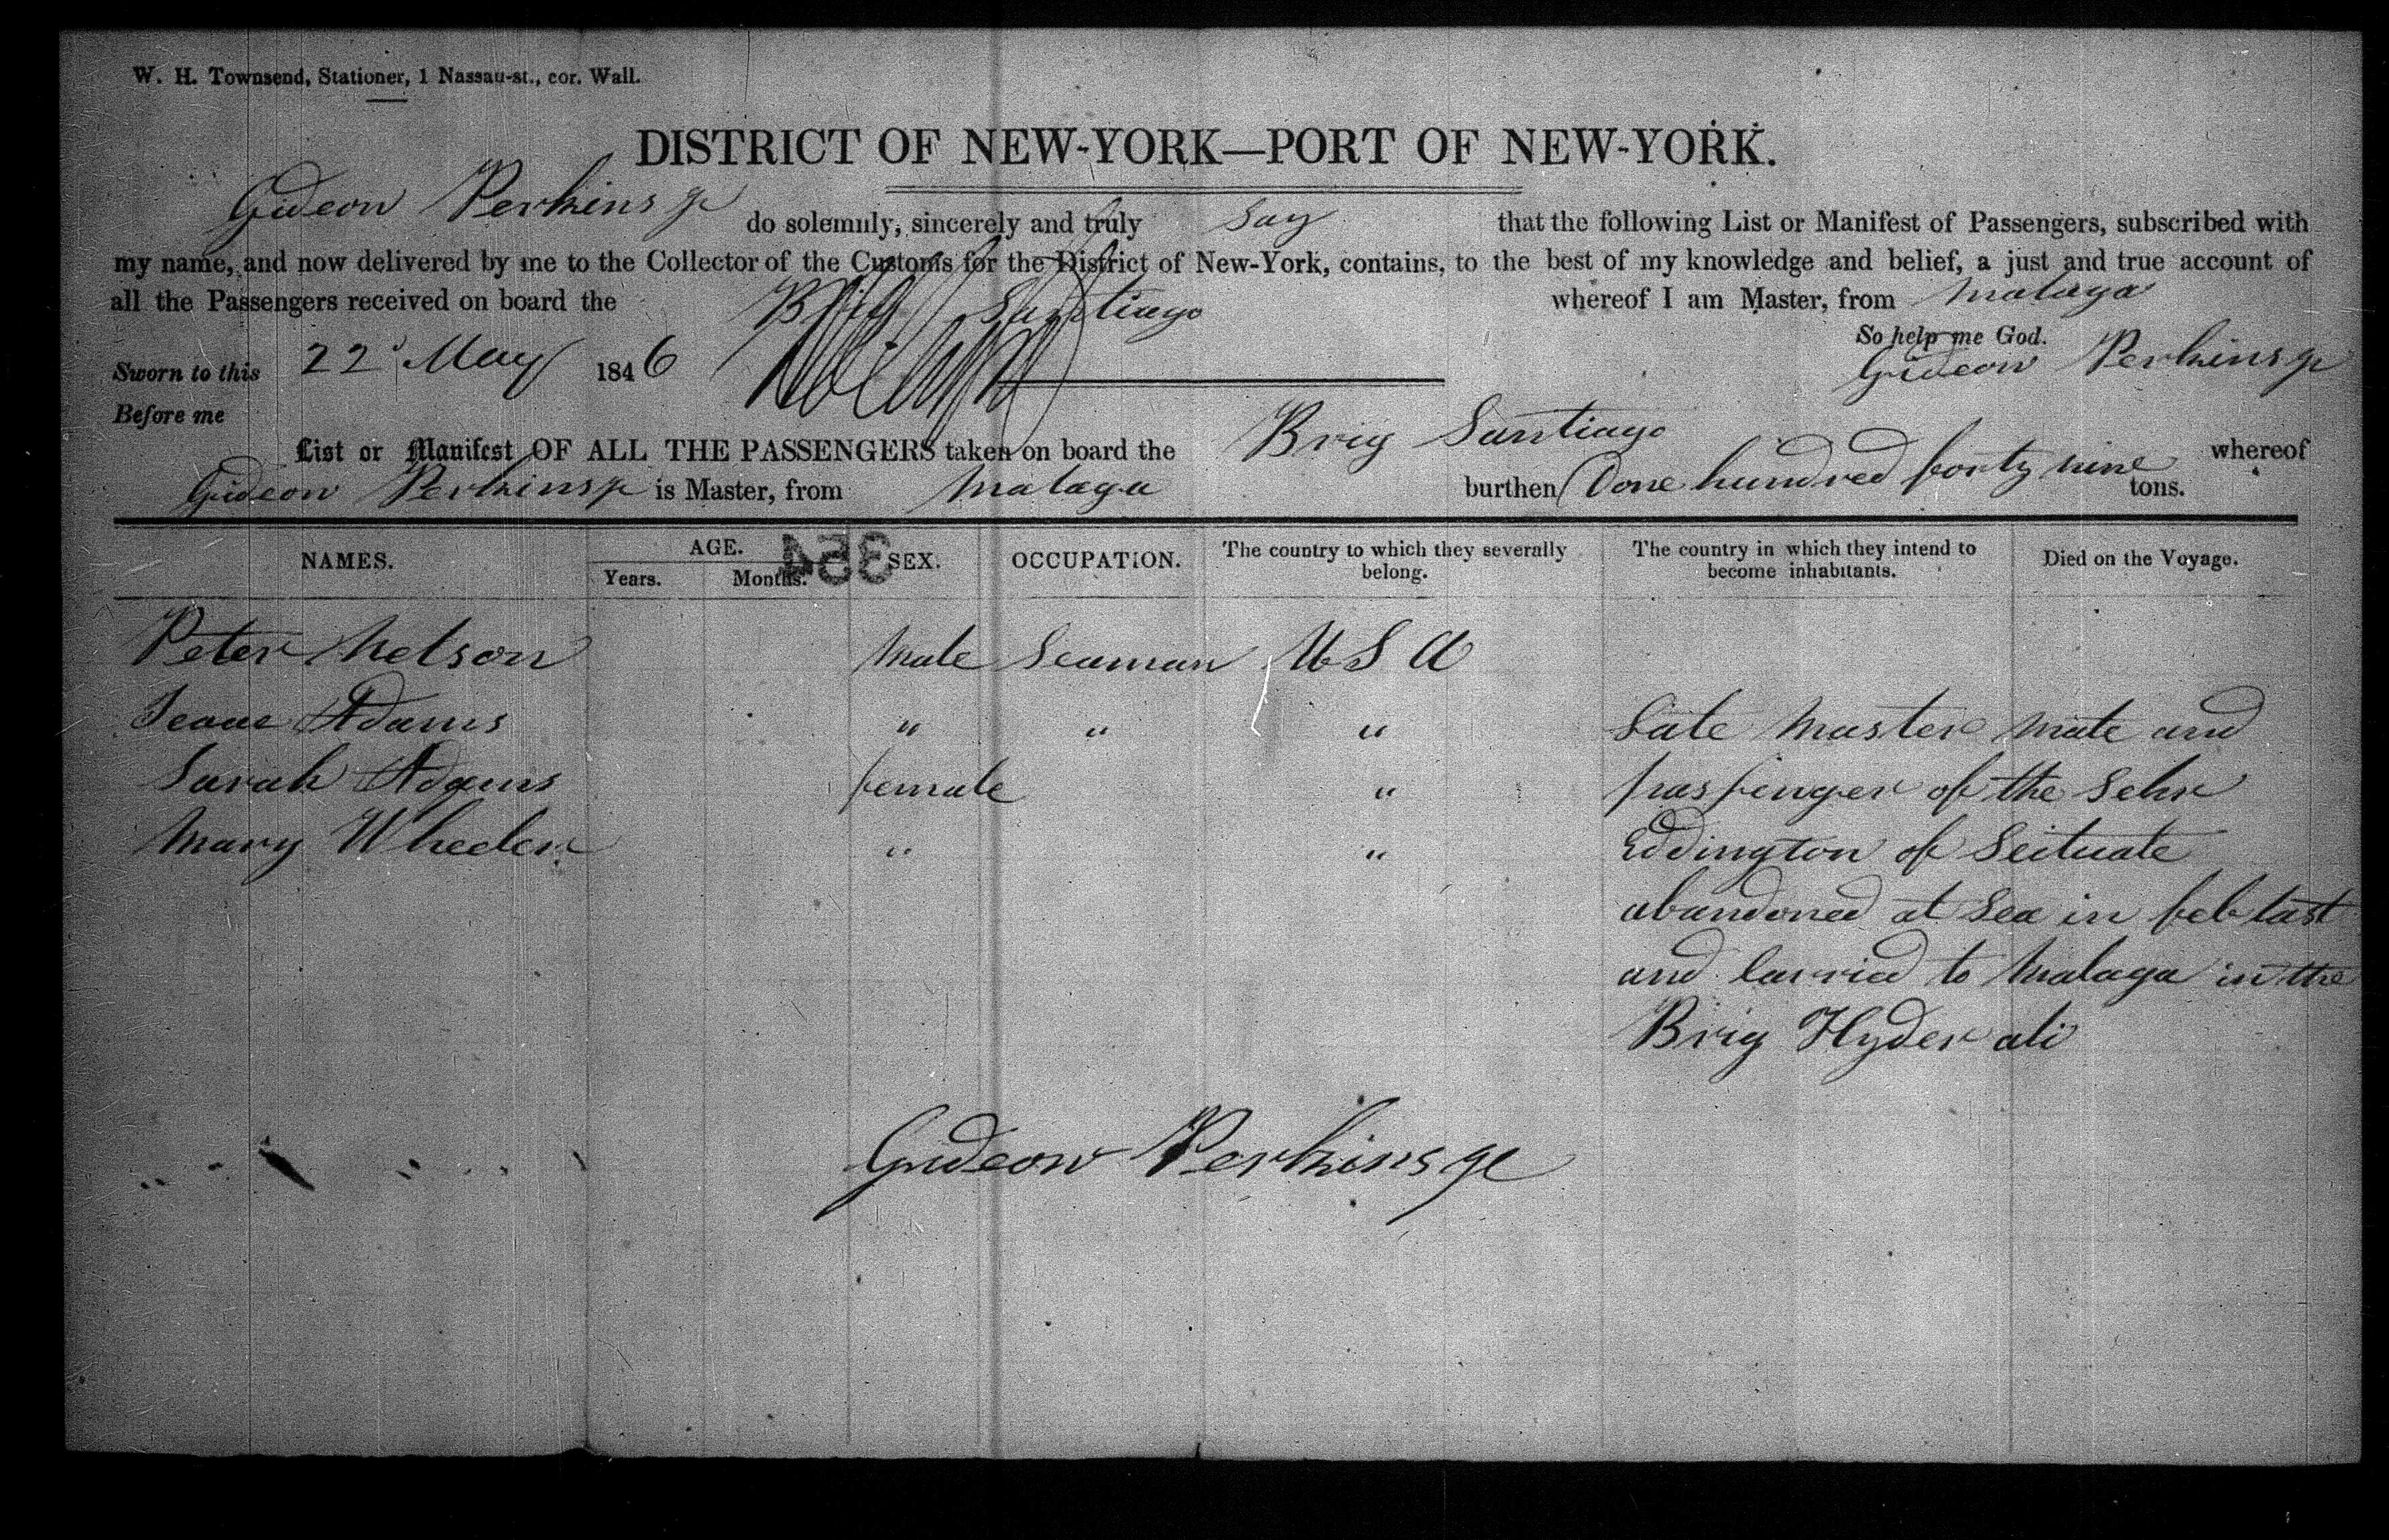 W. H. Townsend, Stationer, 1 Nassau-st., cor. Wall.
DISTRICT OF NEW-YORK—PORT OF NEW-YORK.
Gideon Perkins Jr do solemnly, sincerely and truly say that the following List or Manifest of Passengers, subscribed with
my name, and now delivered by me to the Collector of the Customs for the District of New-York, contains, to the best of my knowledge and belief, a just and true account of
all the Passengers received on board the Brig Santiago whereof I am Master, from Malaga
So help me God.
Sworn to this 22 May 1846 Gideon Perkins Jr
Before me
List or Manifest OF ALL THE PASSENGERS taken on board the Brig Santiago whereof
Gideon Perkins Jr is Master, from Malaga burthen One hundred forty nine tons.
NAMES. AGE. Years. Months. 354 SEX. OCCUPATION. The country to which they severally belong. The country in which they intend to become inhabitants. Died on the Voyage.
Peter Nelson Male Seaman U S A
Adams " " " Late Master mate and
Sarah Adams female " passenger of the Schr
Mary Wheeler " " Eddington of Scituate
abandoned at Sea in feb last
and Carried to Malaga in the
Brig Hyder ali
Gideon Perkins Jr